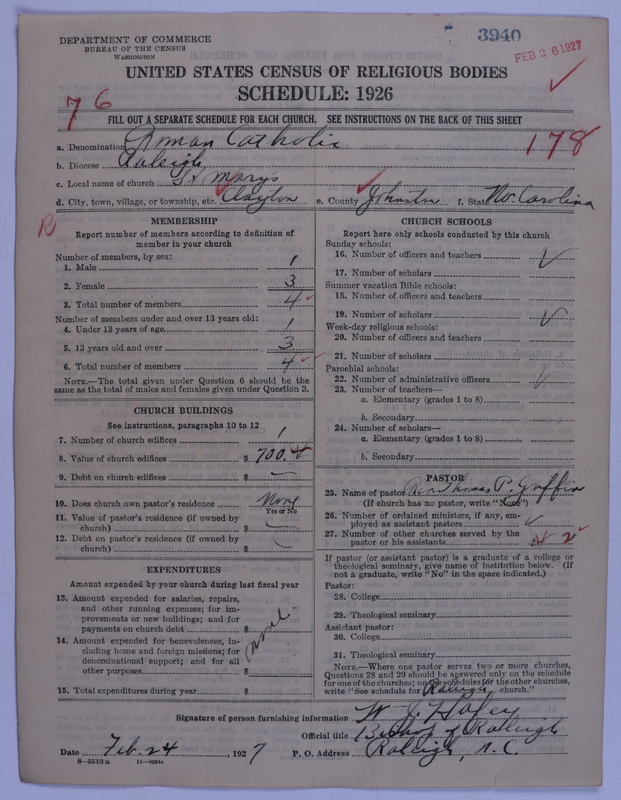 DEPARTMENT OF COMMERCE
BUREAU OF THE CENSUS
WASHINGTON
3940
FEB 26 1927
UNITED STATES CENSUS OF RELIGIOUS BODIES
SCHEDULE: 1926
76
FILL OUT A SEPARATE SCHEDULE FOR EACH CHURCH. SEE INSTRUCTIONS ON THE BACK OF THIS SHEET
178
a. Denomination Roman Catholic
b. Diocese Raleigh
c. Local name of church St Marys
d. City, town, village, or township, etc. Clayton e. County Johnston f. State No. Carolina
R
MEMBERSHIP
Report number of members according to definition of
member in your church
Number of members, by sex:
1. Male 1
2. Female 3
3. Total number of members 4
Number of members under and over 13 years old:
4. Under 13 years of age 1
5. 13 years old and over 3
6. Total number of members 4
NOTE.—The total given under Question 6 should be the
same as the total of males and females given under Question 3.
CHURCH BUILDINGS
See instructions, paragraphs 10 to 12
7. Number of church edifices 1
8. Value of church edifices $ 700.
9. Debt on church edifices $ —
10. Does church own pastor's residence None
Yes or No
11. Value of pastor's residence (if owned by
church) $ —
12. Debt on pastor's residence (if owned by
church) $ —
EXPENDITURES
Amount expended by your church during last fiscal year
13. Amount expended for salaries, repairs,
and other running expenses; for im-
provements or new buildings; and for
payments on church debt $
none.
14. Amount expended for benevolences, in-
cluding home and foreign missions; for
denominational support; and for all
other purposes $
15. Total expenditures during year $
CHURCH SCHOOLS
Report here only schools conducted by this church
Sunday schools:
16. Number of officers and teachers
17. Number of scholars
Summer vacation Bible schools:
18. Number of officers and teachers
19. Number of scholars
Week-day religious schools:
20. Number of officers and teachers
21. Number of scholars
Parochial schools:
22. Number of administrative officers
23. Number of teachers—
a. Elementary (grades 1 to 8)
b. Secondary
24. Number of scholars—
a. Elementary (grades 1 to 8)
b. Secondary
PASTOR
25. Name of pastor Rev. Thomas P. Griffin
(If church has no pastor, write "None")
26. Number of ordained ministers, if any, em-
ployed as assistant pastors
27. Number of other churches served by the
pastor or his assistants 2
If pastor (or assistant pastor) is a graduate of a college or
theological seminary, give name of institution below. (If
not a graduate, write "No" in the space indicated.)
Pastor:
28. College
29. Theological seminary
Assistant pastor:
30. College
31. Theological seminary
NOTE.—Where one pastor serves two or more churches,
Questions 28 and 29 should be answered only on the schedule
for one of the churches; on schedules for the other churches,
write "See schedule for Raleigh church."
Signature of person furnishing information W. J. Hafey
Official title Bishop of Raleigh
Date Feb. 24, 1927 P. O. Address Raleigh, N.C.
8—5519a